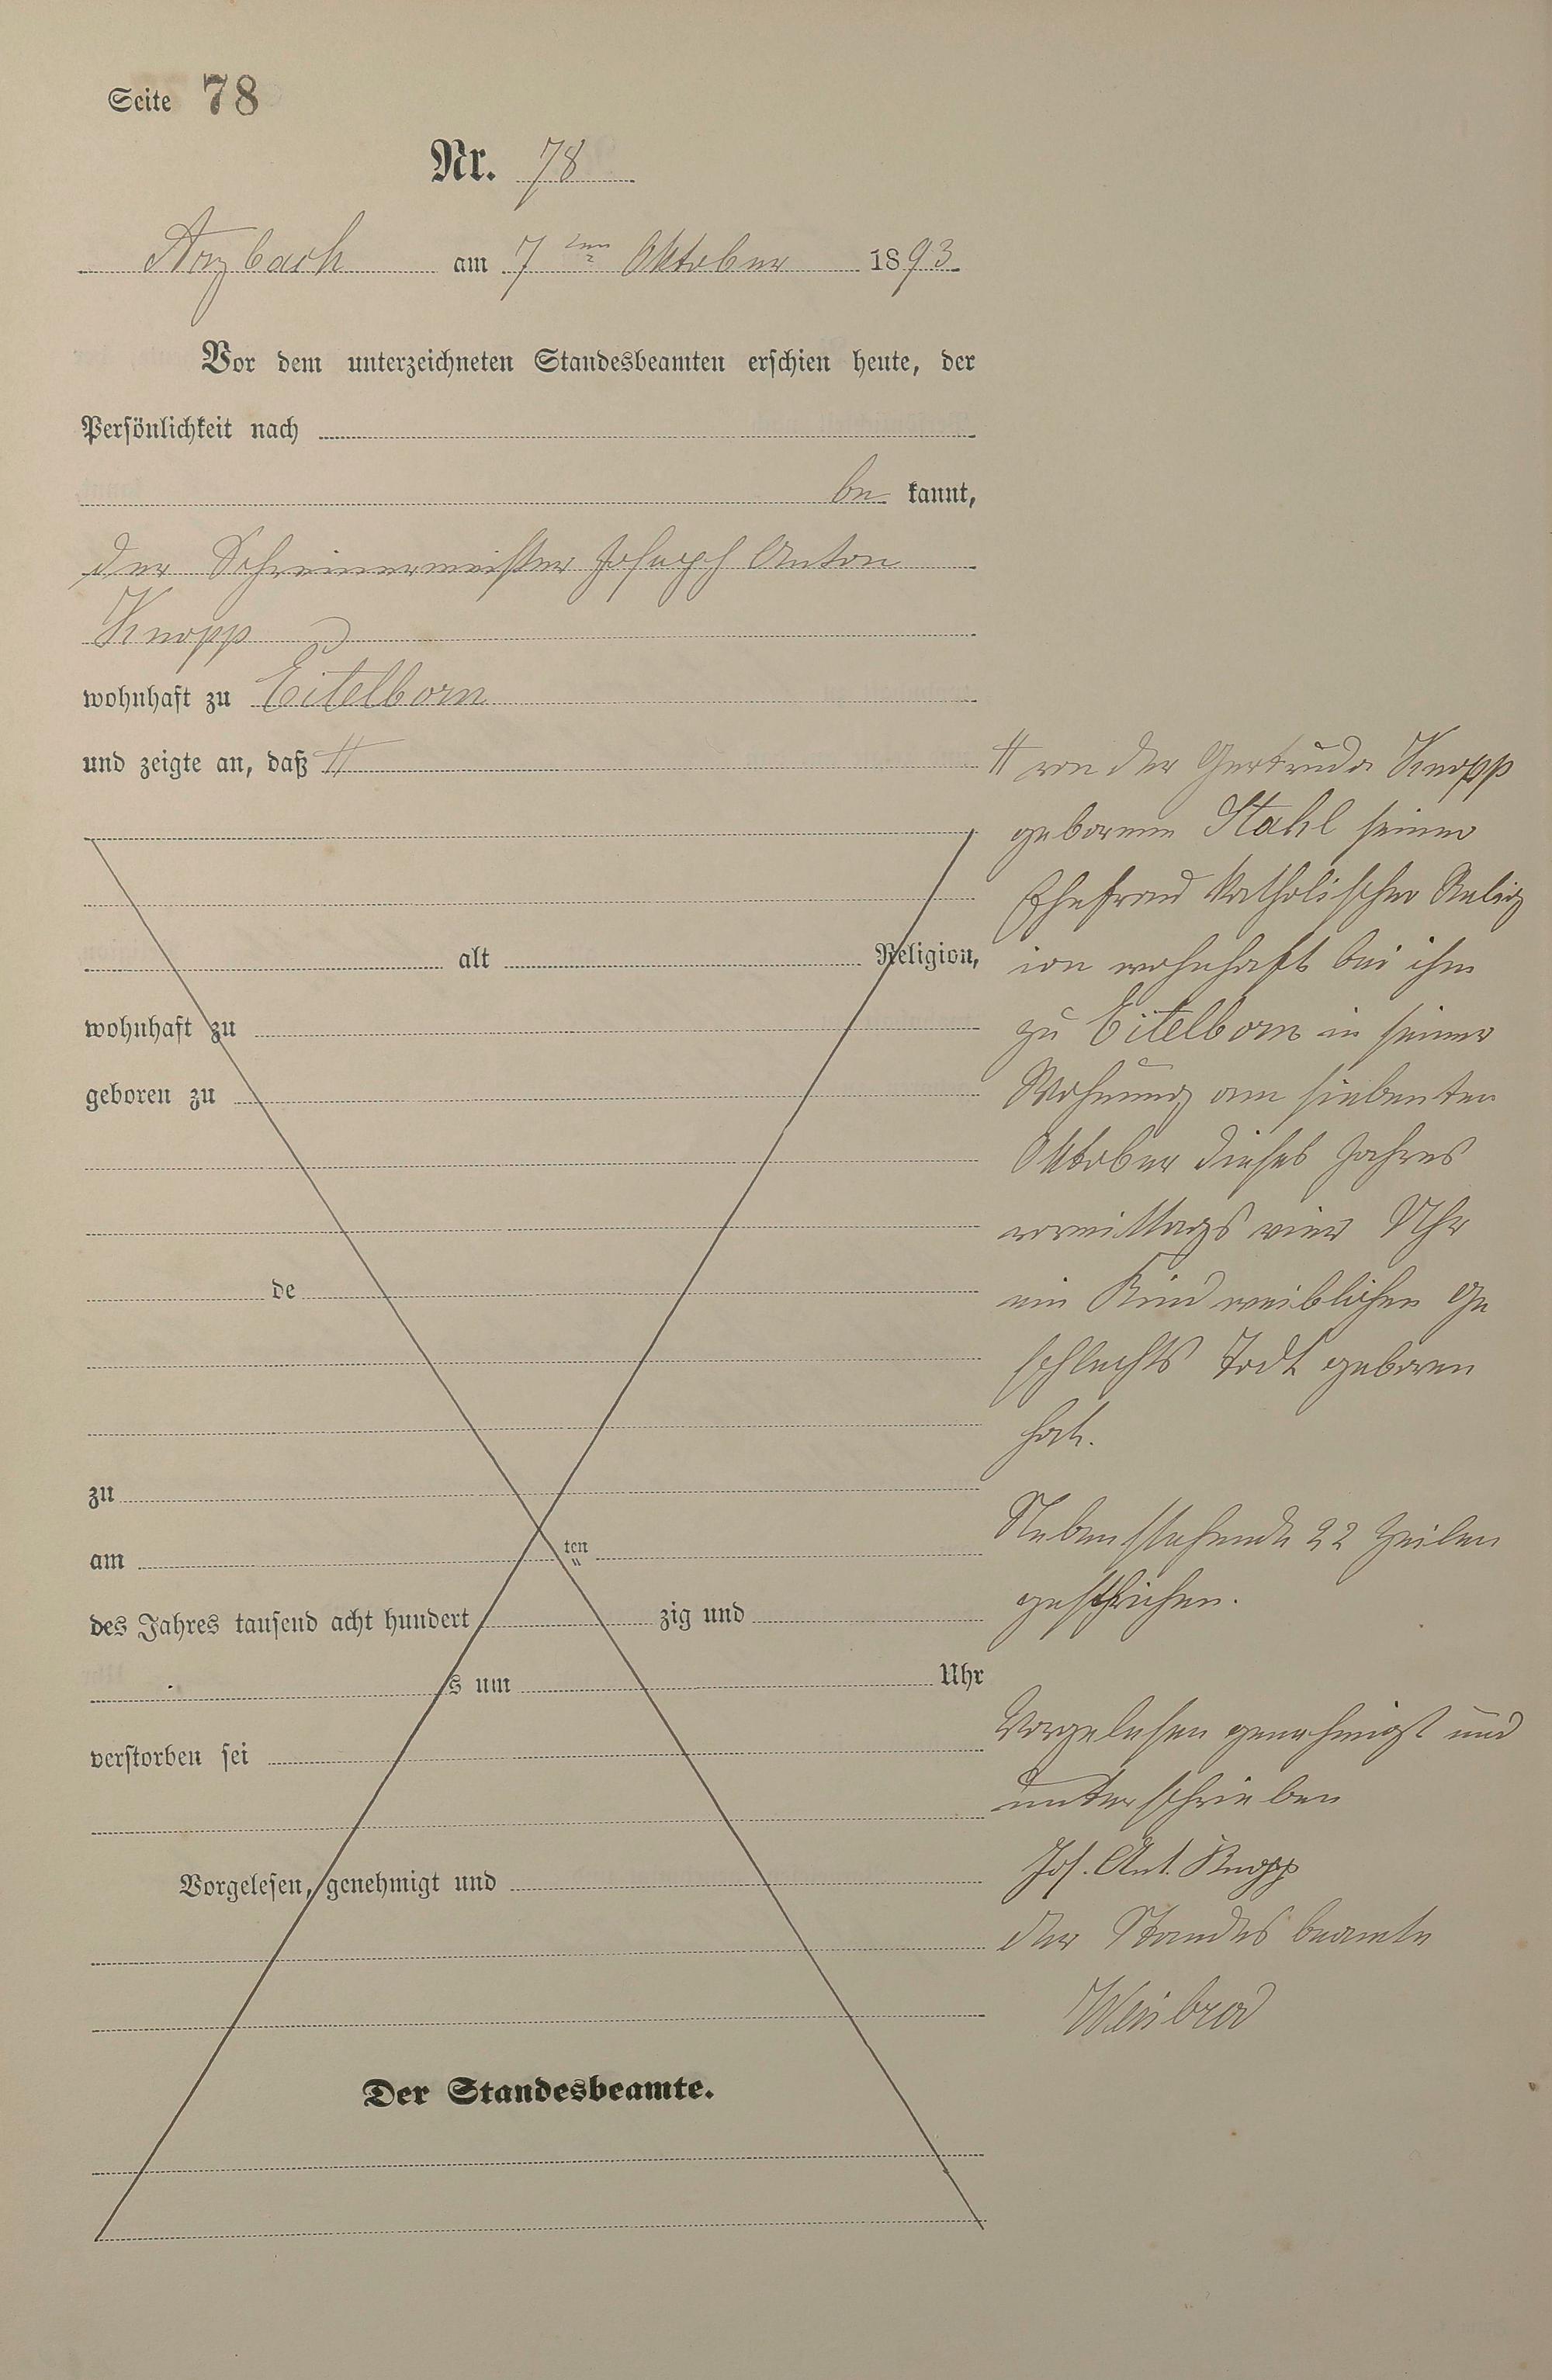 Seite 78
Nr. 78
Arzbach am 7ten Oktober 1893
Vor dem unterzeichneten Standesbeamten erschien heute, der
Persönlichkeit nach
be kannt,
der Schreinermeister Joseph Anton
Knopp
wohnhaft zu Eitelborn
und zeigte an, daß #
alt Religion,
wohnhaft zu
geboren zu
de
zu
am ten
des Jahres tausend acht hundert zig und
s um Uhr
verstorben sei
Vorgelesen, genehmigt und
Der Standesbeamte.
# von der Gertruda Knopp
geborenen Stahl seiner
Ehefrau katholischer Relig
ion wohnhaft bei ihm
zu Eitelborn in seiner
Wohnung am siebenten
Oktober dieses Jahres
vormittags vier Uhr
ein Kind weiblichen Ge
schlechts Todt geboren
hat.
Nebenstehende 22 Zeilen
gestrichen.
Vorgelesen genehmigt und
unterschrieben
Jos. Ant. Knopp
der Standesbeamte
Weinbrod